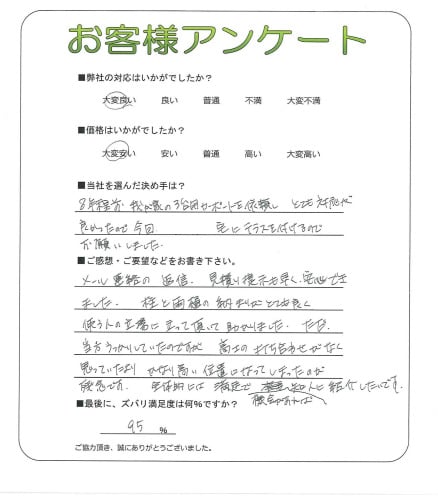 お客様アンケート
■弊社の対応はいかがでしたか？
大変良い 良い 普通 不満 大変不満
■価格はいかがでしたか？
大変安い 安い 普通 高い 大変高い
■当社を選んだ決め手は？
8年程前 我が家の3台用カーポートを依頼し とても対応が
良かったので今回 宅にテラスを付けるので
お願いしました
■ご感想・ご要望などをお書き下さい。
メール連絡の返信、見積り提示も早く、安心でき
ました。柱と雨樋の納まりがとても良く
使う人の立場に立って頂いて助かりました。ただ、
当方うっかりしていたのですが 高さの打ち合わせがなく
思っていたより かなり高い位置になってしまったのが
残念です。全体的には 満足で 知人に紹介したいです。
機会があれば
■最後に、ズバリ満足度は何％ですか？
95 ％
ご協力頂き、誠にありがとうございました。